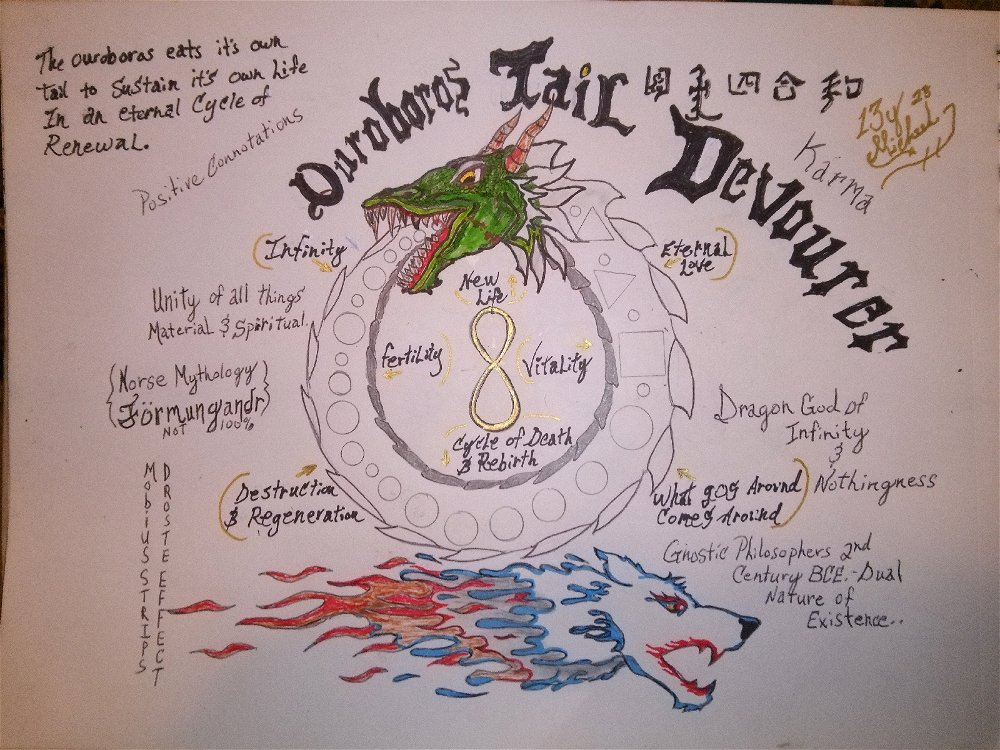 The ouroboras eats it's own
tail to Sustain it's own Life
In an eternal Cycle of
Renewal.
Positive Connotations
Ouroboros Tail
Devourer
四合和
Karma
13y 28
Michael
(Infinity)
Eternal
Love
Unity of all things
Material & Spiritual.
New
Life
fertility
Vitality
{Norse Mythology}
Förmungandr
NOT 100%
Cycle of Death
& Rebirth
Dragon God of
Infinity
&
Nothingness
Destruction
& Regeneration
What gos Around
Comes Around
MobiUS STRIPS
DROSTE EFFECT
Gnostic Philosophers 2nd
Century BCE.-Dual
Nature of
Existence..